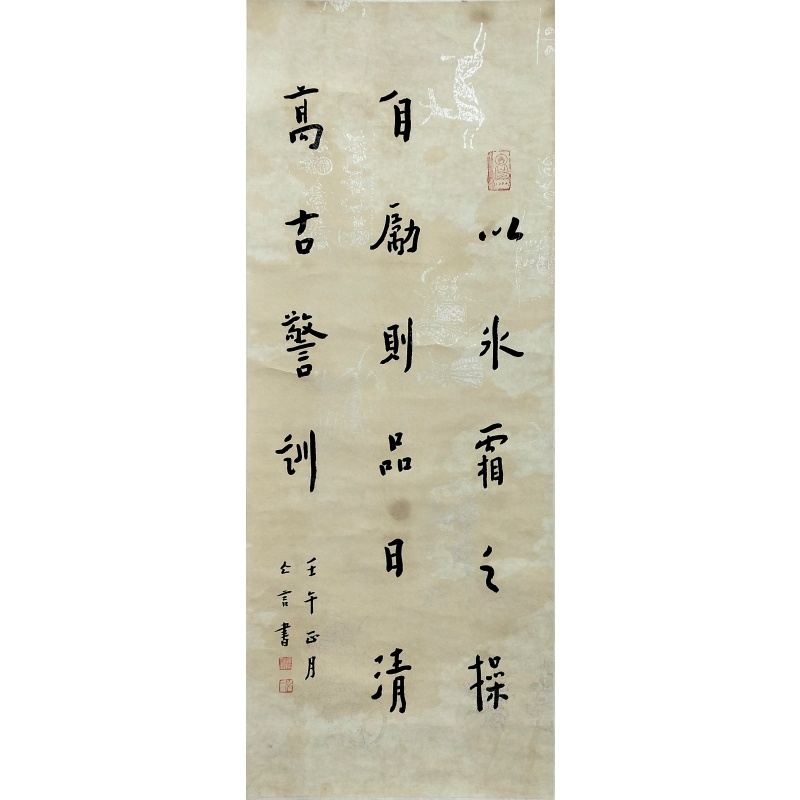 以冰霜之操
自勵則品日清
高古警訓
壬午正月
亼言書